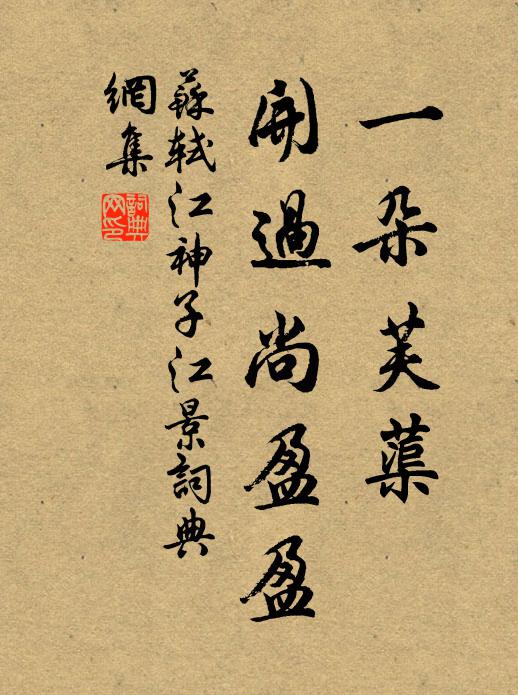 一朵芙蕖
開過尚盈盈
蘇軾江神子江景詞典
網集
詞典網印